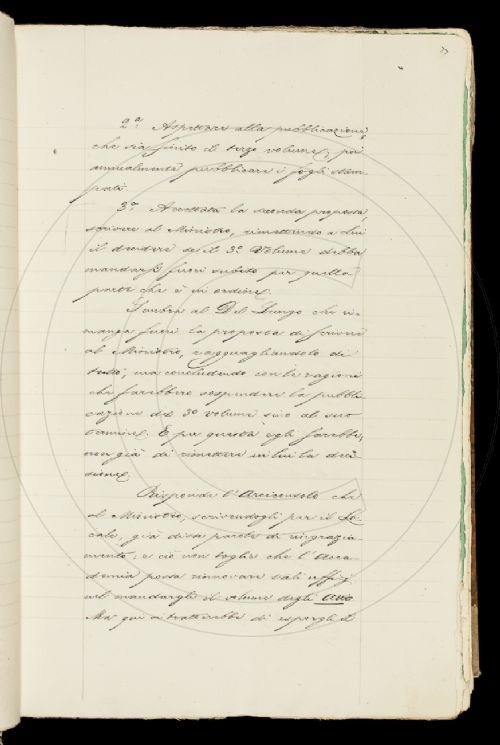 2.ª Aspettare alla pubblicazione,
che sia finito il terzo volume; poi
annualmente pubblicare i fogli stam-
pati.
3.º Accettata la seconda proposta,
scrivere al Ministro, rimettendo a lui
il decidere se il 3.º Volume debba
mandarsi fuori subito per quella
parte che è in ordine.
Sembra al Del Lungo che ri-
manga fuori la proposta di scrivere
al Ministro, ragguagliandolo di
tutto; ma concludendo con le ragioni
che farebbero sospendere la pubbli-
cazione del 3.º volume sino al suo
termine. E per questa egli sarebbe,
non già di rimettere in lui la deci-
sione.
Risponde l'Arciconsolo che
al Ministro, scrivendogli per il Lo-
cale, già disse parole di ringrazia-
mento; e ciò non toglie che l'Acca-
demia possa rinnovare tali uffizi
nel mandargli il volume degli Atti.
Ma qui si tratterebbe di esporgli il